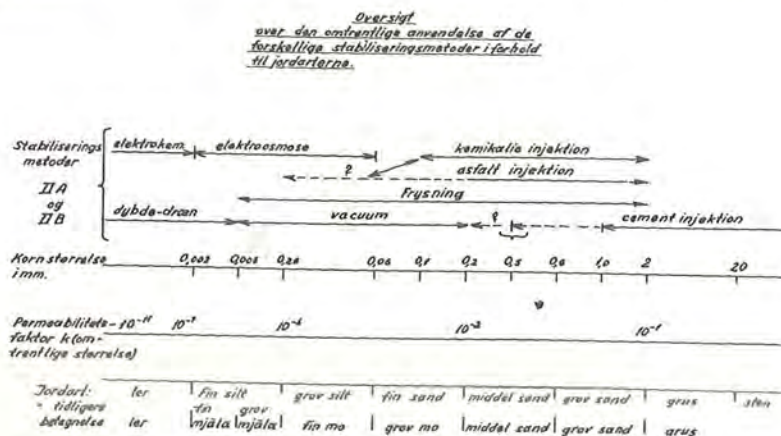 Oversigt
over den omtrentlige anvendelse af de
forskellige stabiliseringsmetoder i forhold
til jordarterne.
Stabiliserings
metoder
II A
og
II B
elektrokem elektroosmose kemikalie injektion
? asfalt injektion
Frysning
dybde-dræn vacuum ? cement injektion
Korn størrelse
i mm.
0,002 0,006 0,02 0,06 0,1 0,2 0,5 0,6 1,0 2 20
Permeabilitets-
faktor k (om-
trentlige størrelse)
10⁻¹¹ 10⁻⁷ 10⁻⁵ 10⁻³ 10⁻¹
Jordart: ler fin silt grov silt fin sand middel sand grov sand grus sten
" tidligere
betegnelse ler fin mjäla grov mjäla fin mo grov mo middel sand grov sand grus